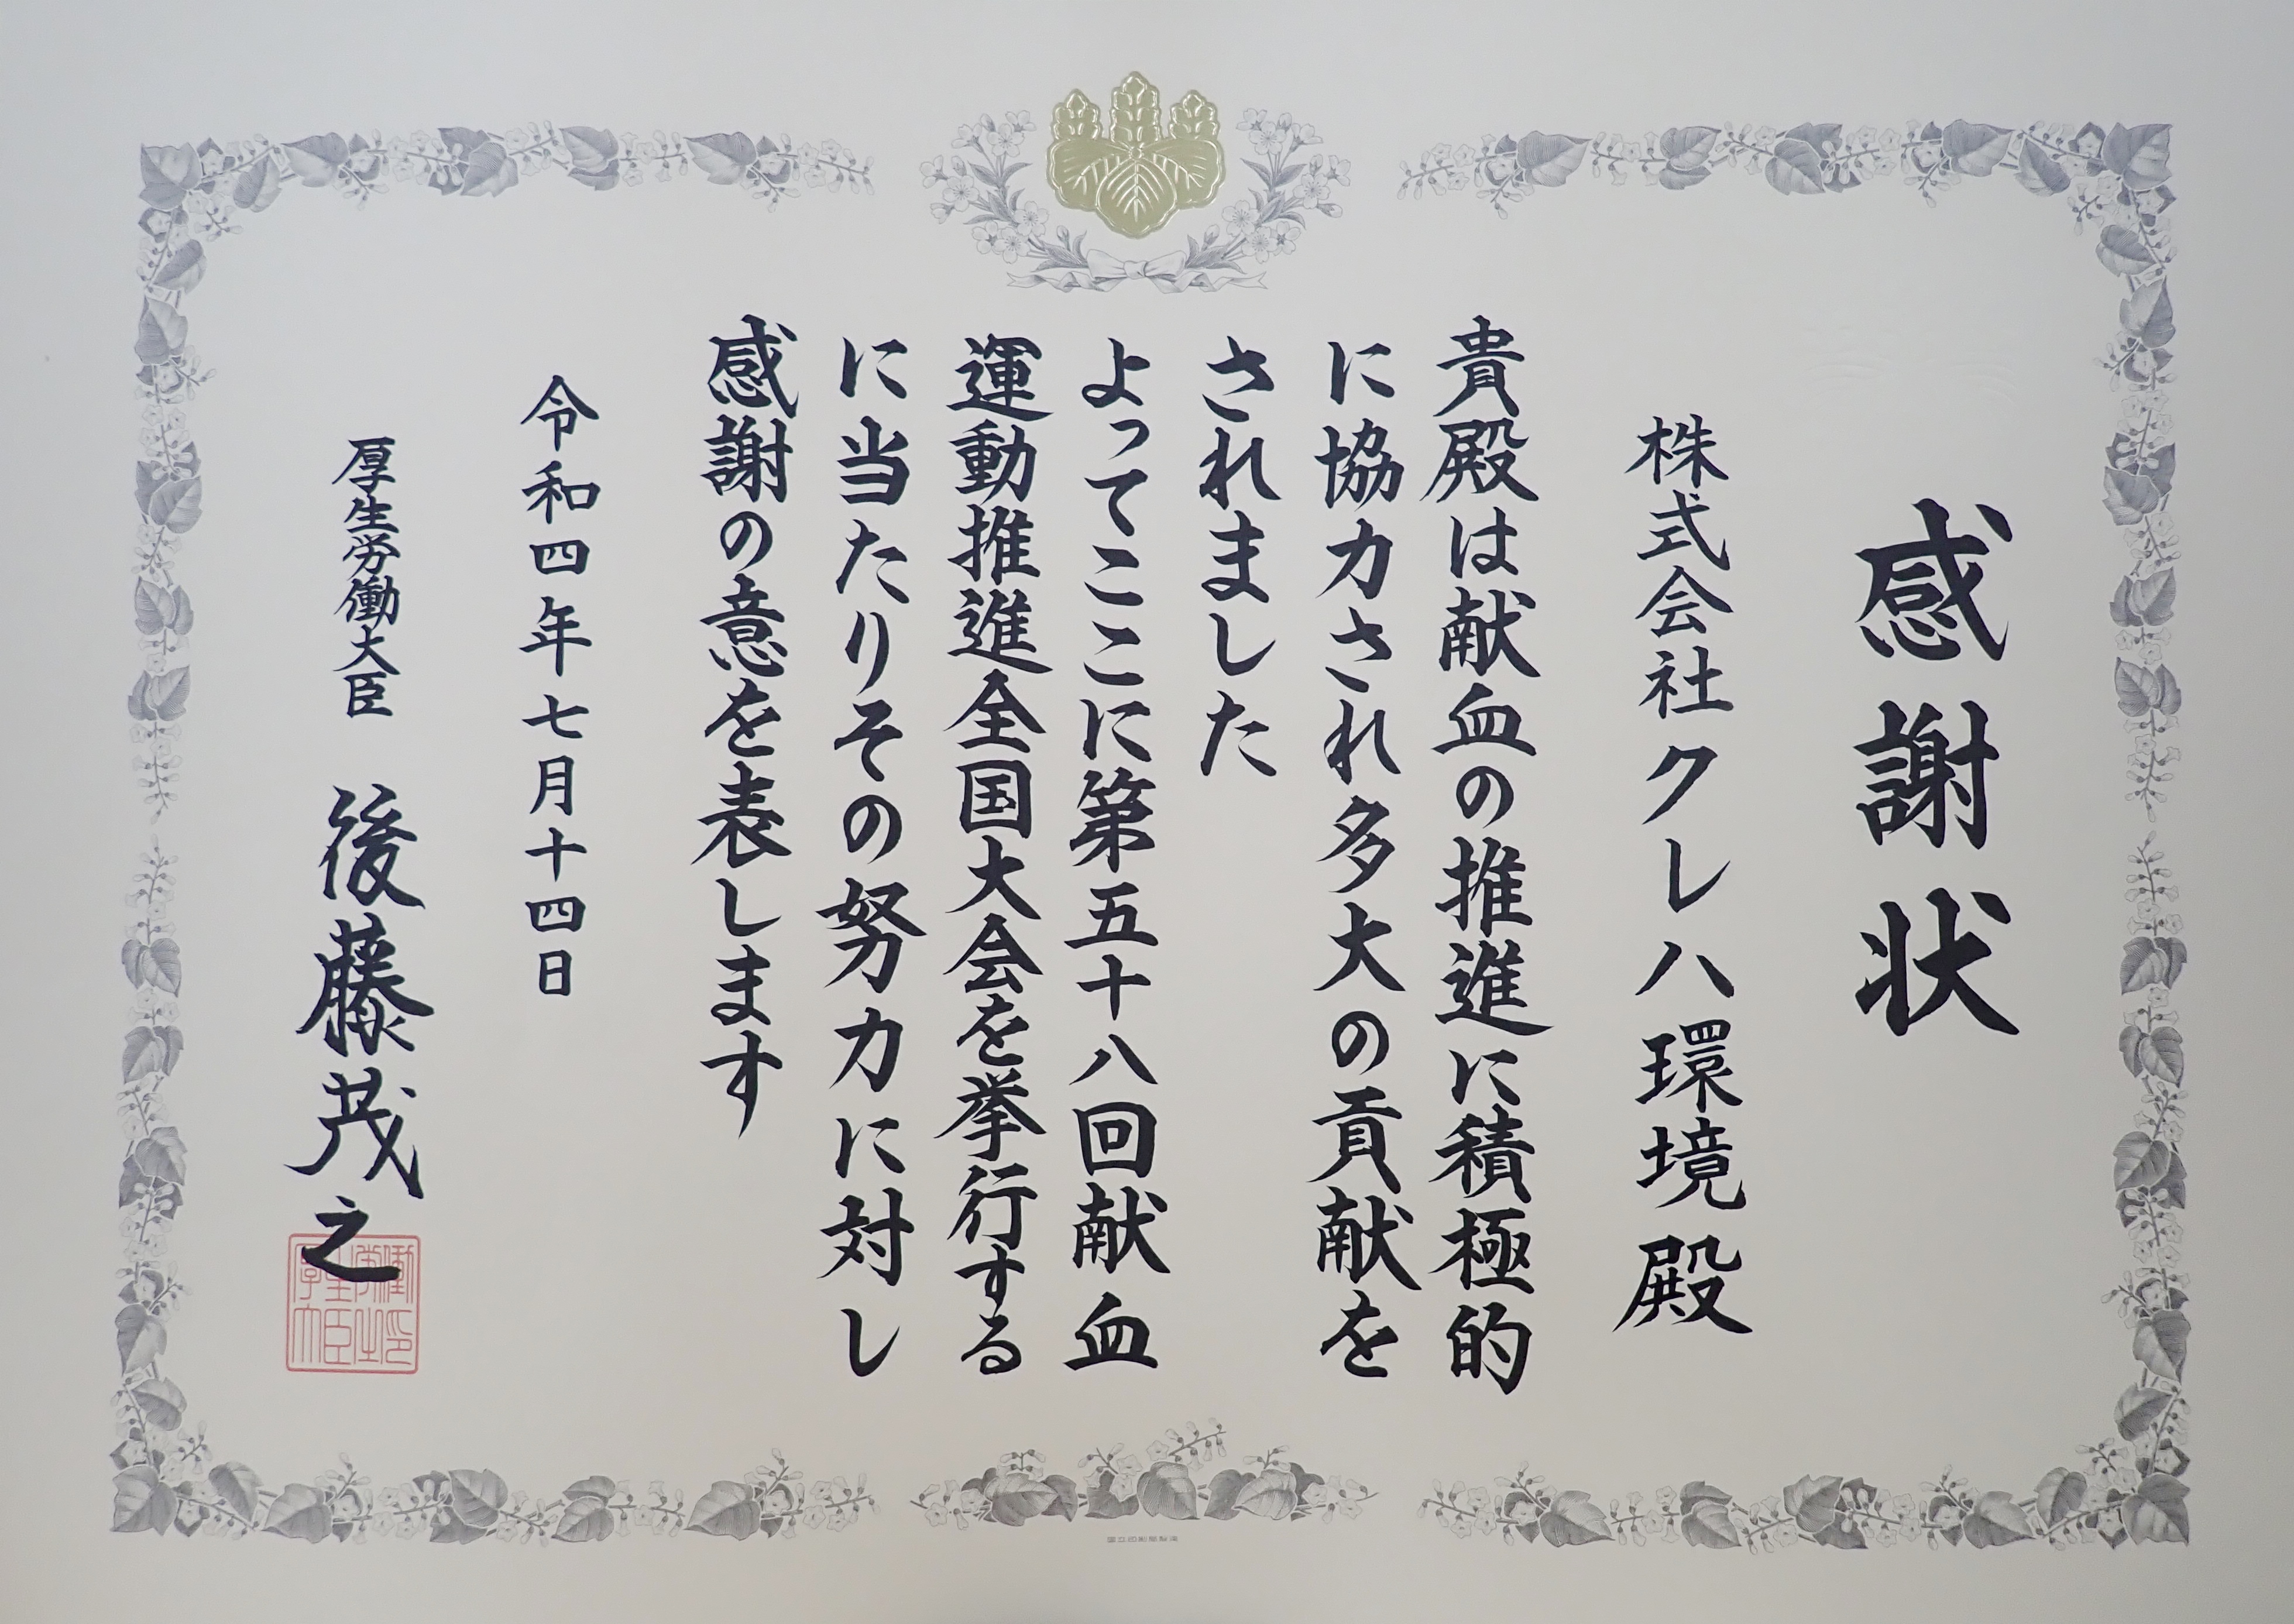 感謝状
株式会社クレハ環境殿
貴殿は献血の推進に積極的
に協力され多大の貢献を
されました
よってここに第五十八回献血
運動推進全国大会を挙行する
に当たりその努力に対し
感謝の意を表します
令和四年七月十四日
厚生労働大臣 後藤茂之